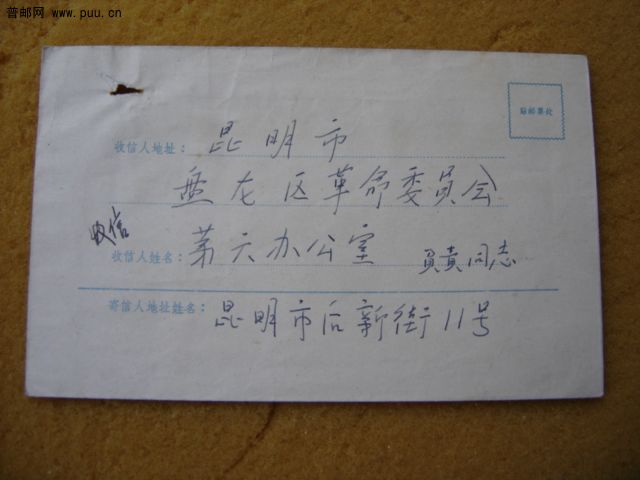 普邮网 www.puu.cn
贴邮票处
收信人地址：昆明市
盘龙区革命委员会
收信
收信人姓名：第六办公室 负责同志
寄信人地址姓名：昆明市后新街11号